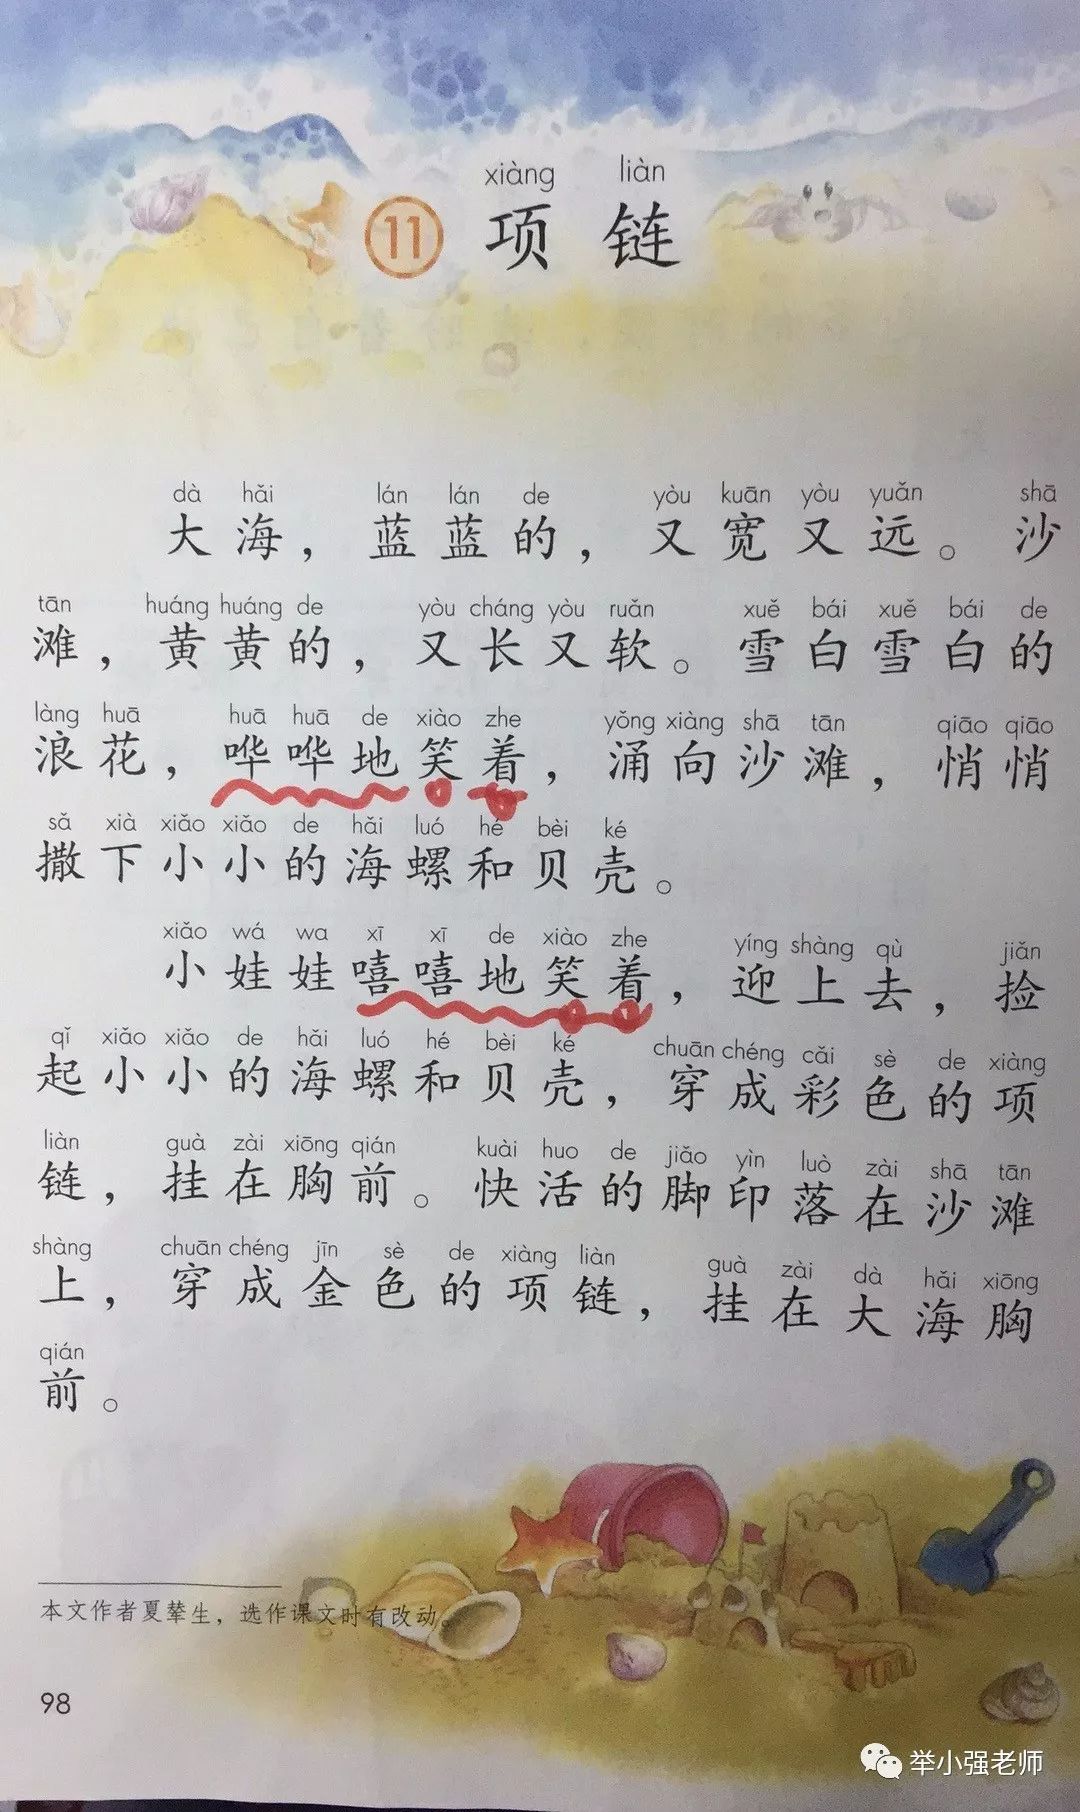 xiàng liàn
11 项链
dà hǎi lán lán de yòu kuān yòu yuǎn shā
大海，蓝蓝的，又宽又远。沙
tān huáng huáng de yòu cháng yòu ruǎn xuě bái xuě bái de
滩，黄黄的，又长又软。雪白雪白的
làng huā huā huā de xiào zhe yǒng xiàng shā tān qiāo qiāo
浪花，哗哗地笑着，涌向沙滩，悄悄
sǎ xià xiǎo xiǎo de hǎi luó hé bèi ké
撒下小小的海螺和贝壳。
xiǎo wá wa xī xī de xiào zhe yíng shàng qù jiǎn
小娃娃嘻嘻地笑着，迎上去，捡
qǐ xiǎo xiǎo de hǎi luó hé bèi ké chuān chéng cǎi sè de xiàng
起小小的海螺和贝壳，穿成彩色的项
liàn guà zài xiōng qián kuài huo de jiǎo yìn luò zài shā tān
链，挂在胸前。快活的脚印落在沙滩
shàng chuān chéng jīn sè de xiàng liàn guà zài dà hǎi xiōng
上，穿成金色的项链，挂在大海胸
qián
前。
本文作者夏辇生，选作课文时有改动。
98
举小强老师